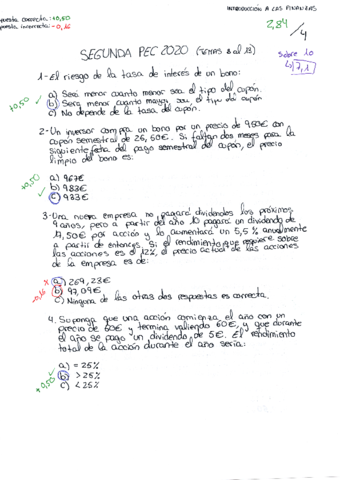 INTRODUCCIÓN A LAS FINANZAS
puesta correcta: +0,50
puesta incorrecta: -0,16
2,84/4
SEGUNDA PEC 2020 (TEMAS 8 al 13)
sobre 10
7,1
1- El riesgo de la tasa de interés de un bono:
+0,50
a) Será menor cuanto menor sea el tipo del cupón.
b) Será menor cuanto mayor sea el tipo del cupón
c) No depende de la tasa del cupón.
2- Un inversor compra un bono por un precio de 950€ con
cupón semestral de 26,50€. Si faltan dos meses para la
siguiente fecha del pago semestral del cupón, el precio
limpio del bono es:
+0,50
a) 967€
b) 983€
c) 933€
3- Una nueva empresa no pagará dividendos los próximos
9 años, pero a partir del año 10 pagará un dividendo de
17,50€ por acción y lo aumentará un 5,5% anualmente
a partir de entonces. Si el rendimiento que requiere sobre
las acciones es el 12%, el precio actual de las acciones
de la empresa es de:
-0,16
a) 269,23€
b) 97,09€
c) Ninguna de las otras dos respuestas es correcta.
4. Suponga que una acción comienza el año con un
precio de 50€ y termina valiendo 60€, y que durante
el año se pagó un dividendo de 5€. El rendimiento
total de la acción durante el año sería:
+0,50
a) = 25%
b) > 25%
c) < 25%